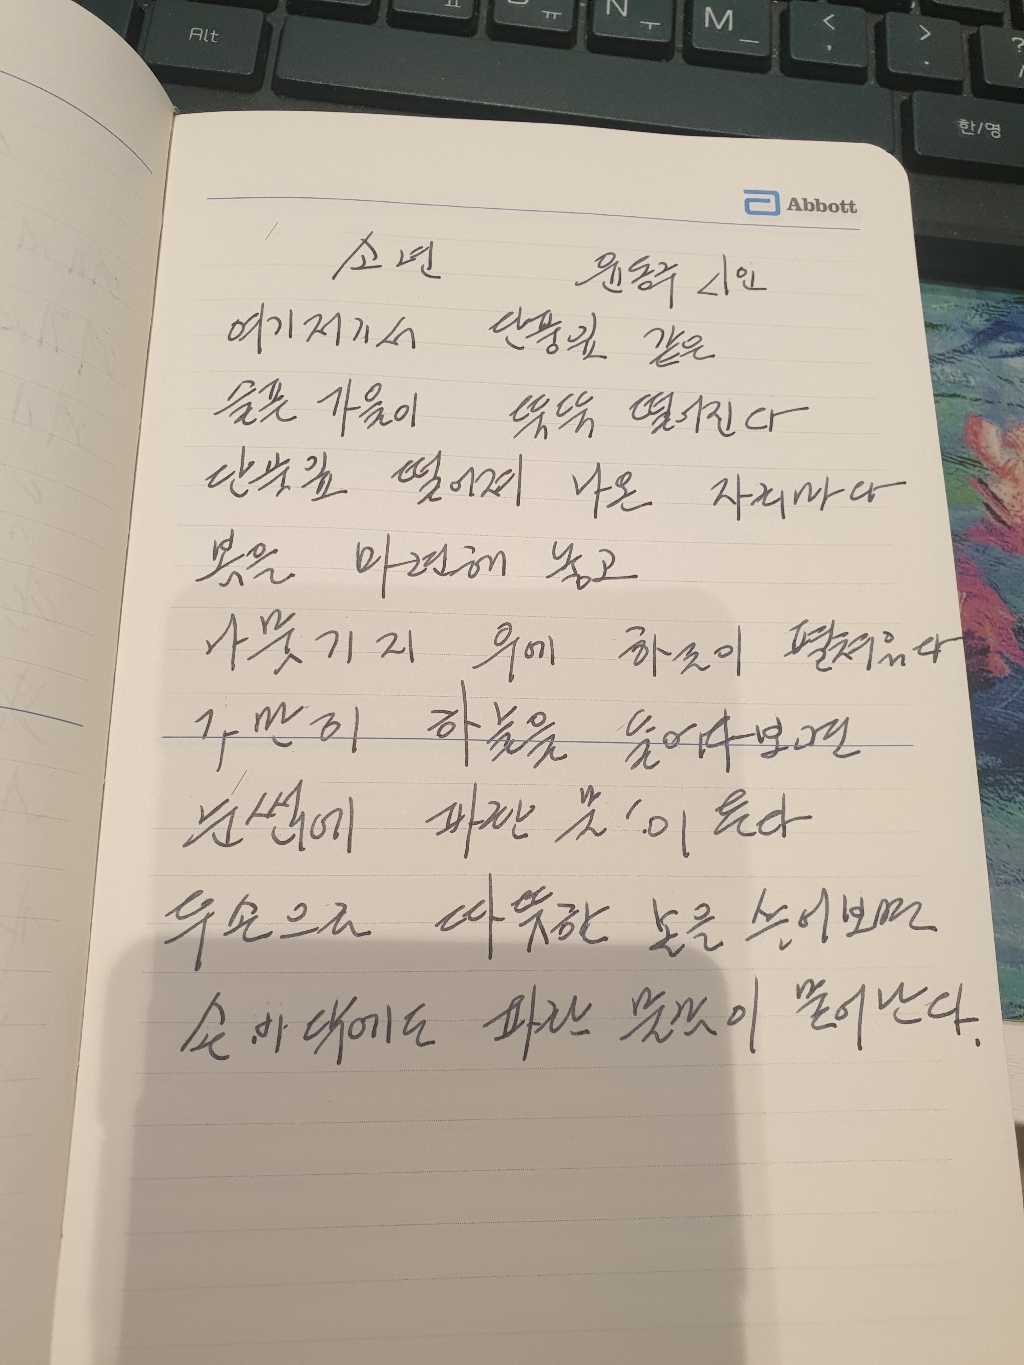 Alt
N ㅜ
M ㅡ
<
,
>
.
?
/
한/영
Abbott
소년 윤동주 시인
여기저기서 단풍잎 같은
슬픈 가을이 뚝뚝 떨어진다
단풍잎 떨어져 나온 자리마다
봄을 마련해 놓고
나뭇가지 위에 하늘이 펼쳐있다
가만히 하늘을 들여다보려면
눈썹에 파란 물감이 든다
두손으로 따뜻한 볼을 쓰어보면
손바닥에도 파란 물감이 묻어난다.